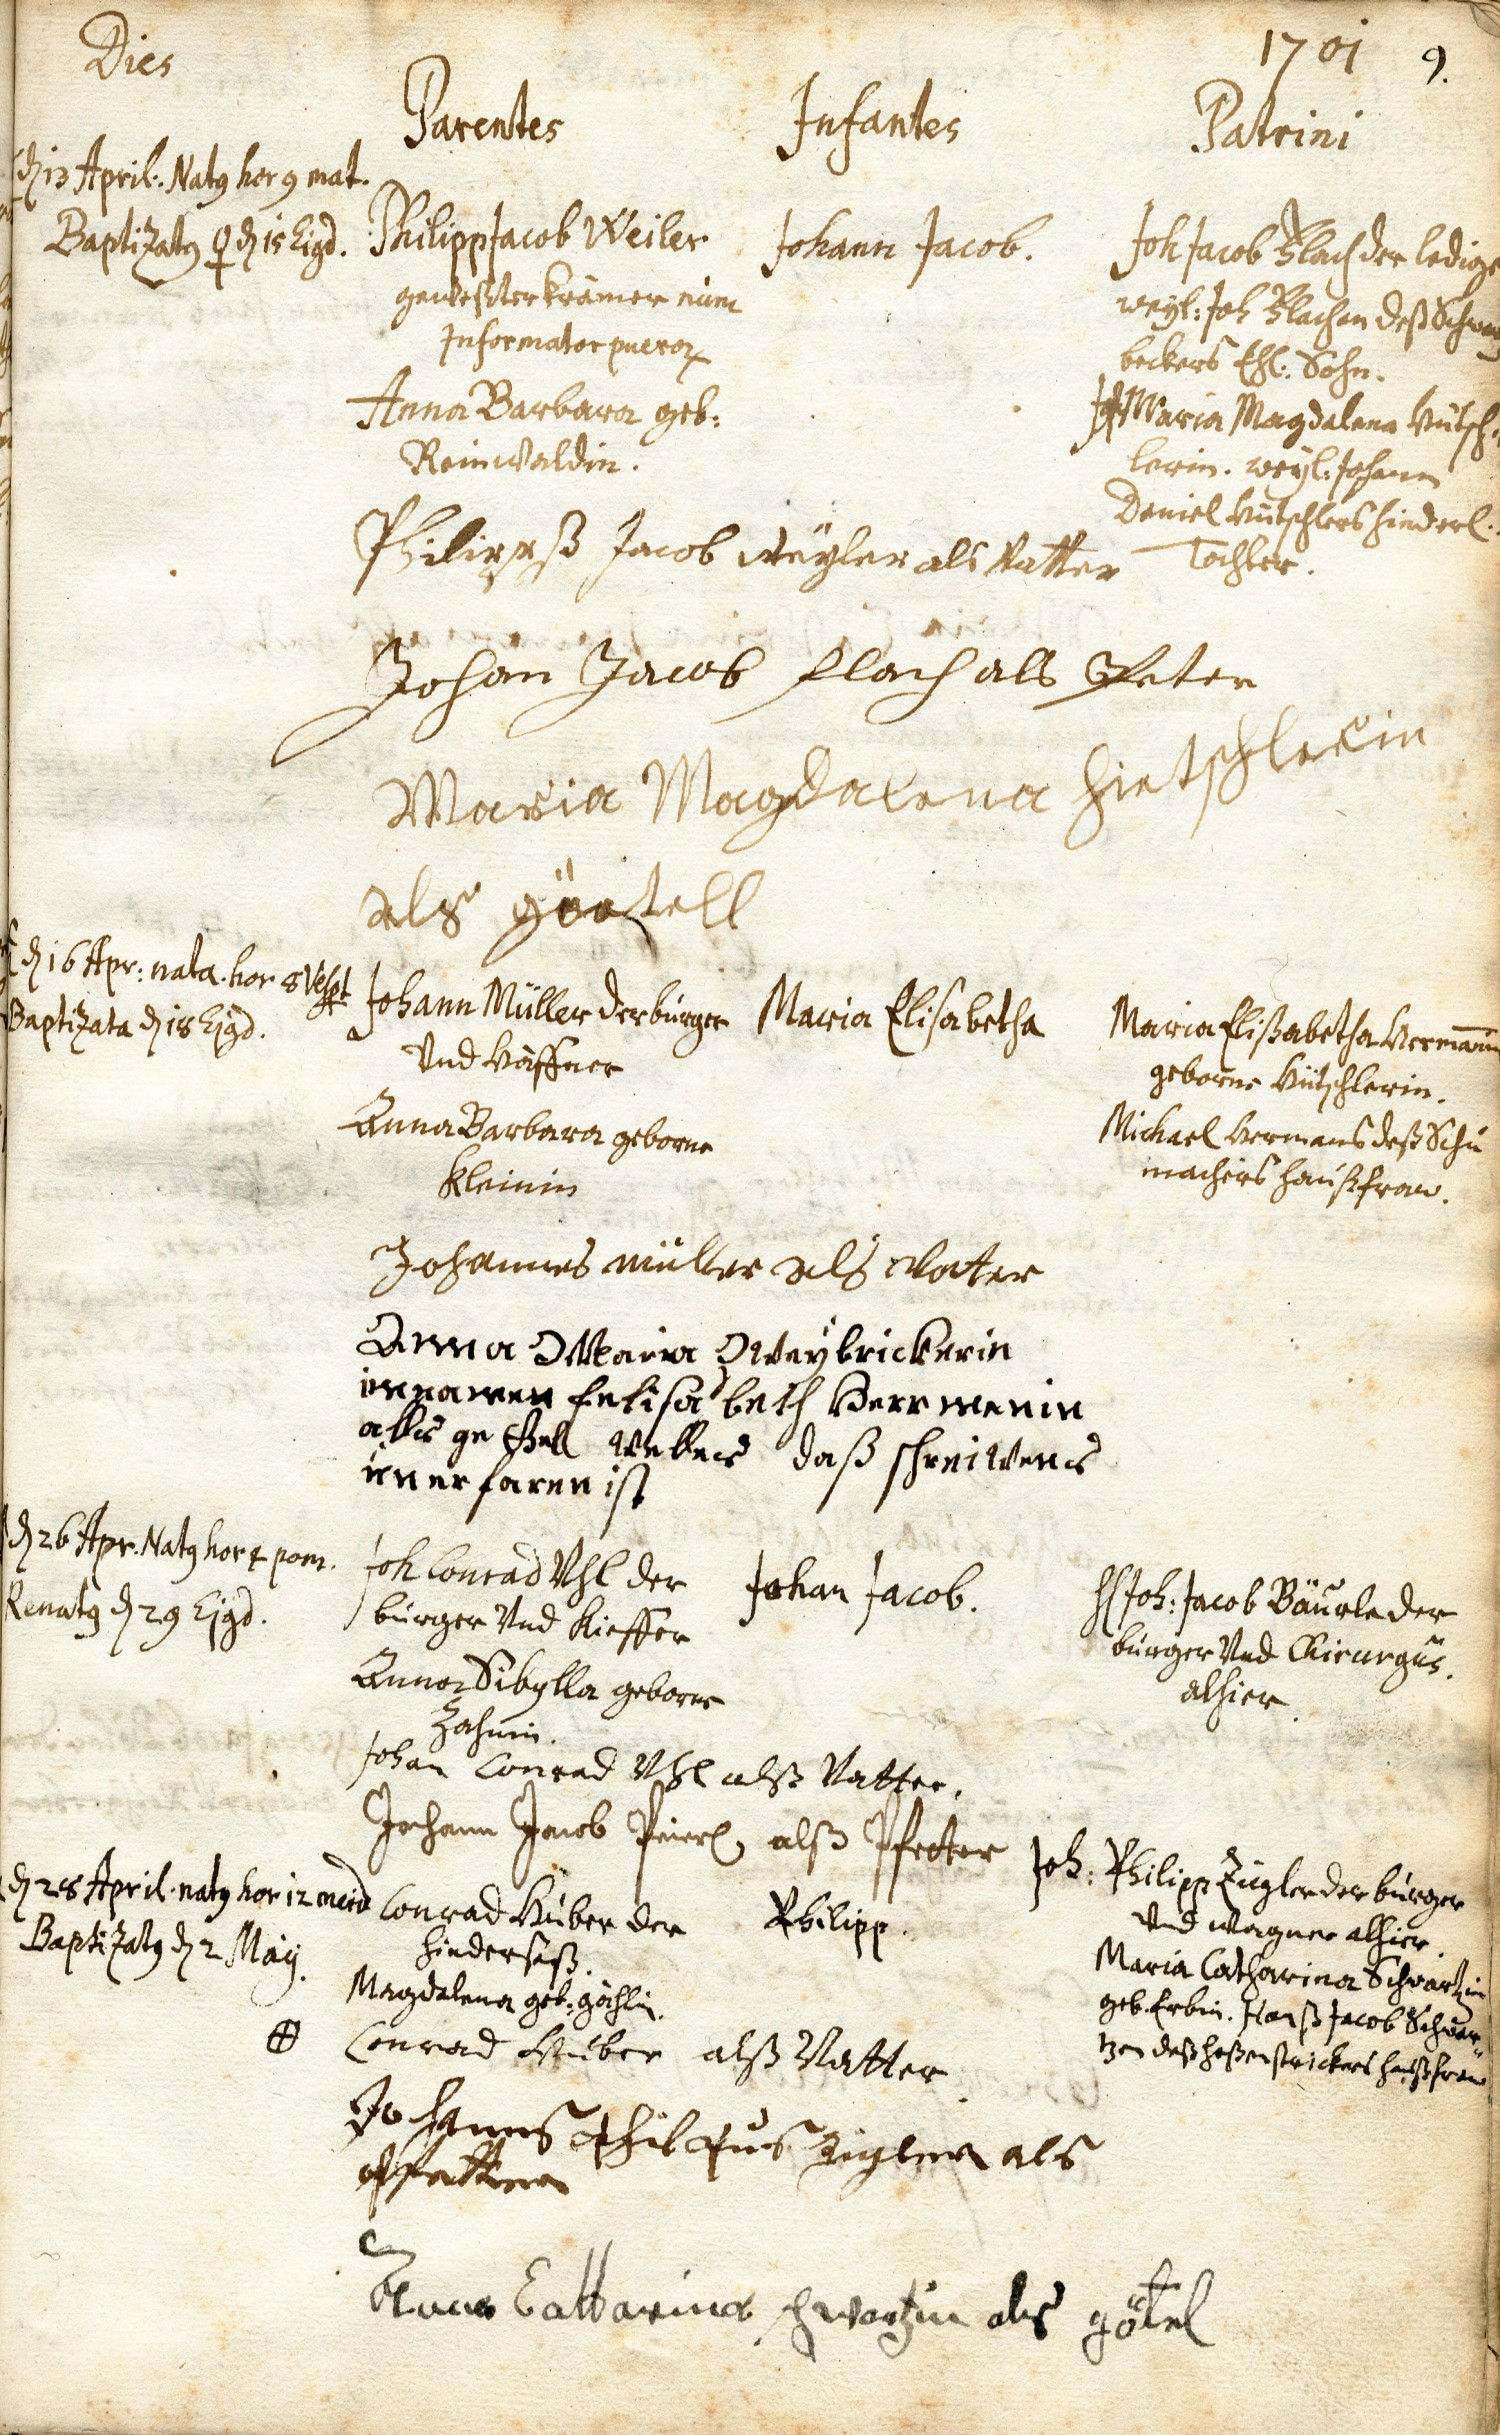 Dies
1701 9.
Parentes Infantes Patrini
d 13 April. Nat9 hor 9 mat.
Baptizat9 ♀ d 15 Eijd.
Philipp Jacob Weiler
gewesster krämer nunc
Informator pueror
Anna Barbara geb:
Reinwaldin.
Johann Jacob.
Joh Jacob Flach der ledige
weyl: Joh Flachen deß Schwartz
beckers Ehl: Sohn.
Jgf Maria Magdalena Hütsch
lerin. weyl: Johann
Daniel Hütschlers hinderl:
Tochter.
Philipß Jacob Weyler als Vatter
Johan Jacob Flach als Peter
Maria Magdalena Hietschlerin
als göottell
d 16 Apr: nata hor 8 Vesp
Baptizata d 18 Ejgd.
Johann Müller der burger
Und Häffner
Anna Barbara geborne
Kleinin
Maria Elisabetha
Maria Elißabetha Hermännin
geborne Hütschlerin.
Michael Hermans deß Schu
machers haußfraw.
Johannes müller als Vatter
Anna Maria Zweybrickerin
im namen Eelisabeth Herrmenin
alls gettell welles daß schreiwens
unerfaren ist
d 26 Apr. Nat9 hor 4 pom.
Renat9 d 29 Ejgd.
Joh Conrad Uhl der
burger Und Kieffer
Anna Sibylla geborne
Zahnin.
Johan Jacob.
H Joh: Jacob Bäurle der
burger Und Chirurgus.
alhier.
Johan Conrad Uhl alß Vatter.
Johann Jacob Peierl alß Pfetter
d 28 April nat9 hor 12 merid
Baptizat9 d 2 Maij.
Conrad Huber der
hindersaß.
Magdalena geb:
Philipp.
Joh: Philipp Zigler der burger
Und Wagner alhier.
Maria Catharina Schwartzin
geb. Erbin. Hanß Jacob Schwar-
tzen deß hoßenstrickers haußfraw
Conrad Huber alß Vatter
Johannes Philipus Zigler als
Pfetter
Catharina schwartzin als götel